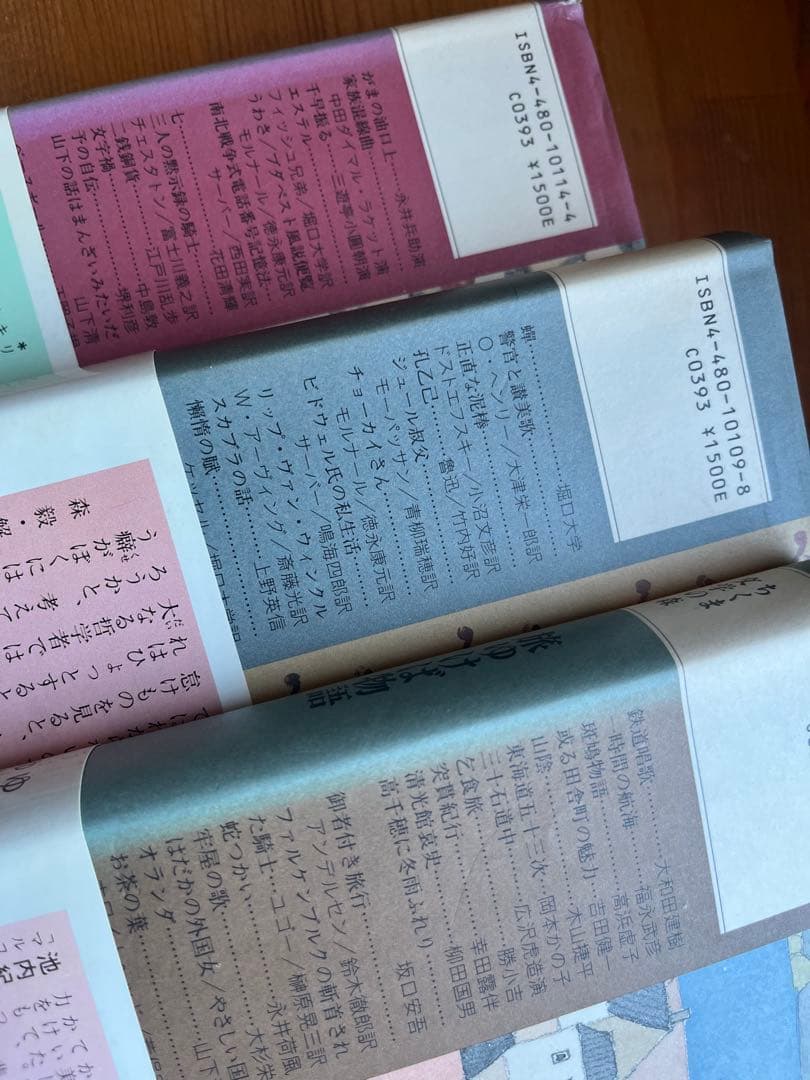 ISBN4-480-10114-4
C0393 ¥1500E
がまの油口上……永井兵助演
家族混線曲……
中田ダイマル・ラケット演
千早振る……三遊亭小圓朝演
エステル……
フィッシュ兄弟/堀口大学訳
うわさ/ブダペスト風説便覧
モルナール/徳永康元訳
南北戦争式電話番号記憶法…
サーバー/西田実訳
七……花田清輝
三人の黙示録の騎士……
チェスタトン/富士川義之訳
二銭銅貨……江戸川乱歩
文字禍……中島敦
予の自伝……堺利彦
山下の話はまんざいみたいだ
山下清
ISBN4-480-10109-8
C0393 ¥1500E
蟬……堀口大学
警官と讃美歌……
O・ヘンリー/大津栄一郎訳
正直な泥棒……
ドストエフスキー/小沼文彦訳
孔乙己……魯迅/竹内好訳
ジュール叔父……
モーパッサン/青柳瑞穂訳
チョーカイさん……
モルナール/徳永康元訳
ビドウェル氏の私生活……
サーバー/鳴海四郎訳
リップ・ヴァン・ウィンクル
W・アーヴィング/斎藤光訳
スカブラの話……上野英信
懶惰の賦……
森毅・解
う
癖がぼくには
ろうかと、考えて
大なる哲学者では
れはひょっとすると
怠けものを見ると、
ちくま
旅ゆけば物語
鉄道唱歌……大和田建樹
一時間の航海……福永武彦
斑鳩物語……高浜虚子
或る田舎町の魅力…吉田健一
山陰……木山捷平
東海道五十三次…岡本かの子
三十石道中……広沢虎造演
乞食旅……勝小吉
突貫紀行……幸田露伴
清光館哀史……柳田国男
高千穂に冬雨ふれり……
坂口安吾
御者付き旅行……
アンデルセン/鈴木徹郎訳
ファルケンブルクの斬首され
た騎士…ユゴー/榊原晃三訳
蛇つかい……永井荷風
牢屋の歌……大杉栄
はだかの外国女/やさしい国
オランダ……山下
お茶の葉……
池内紀